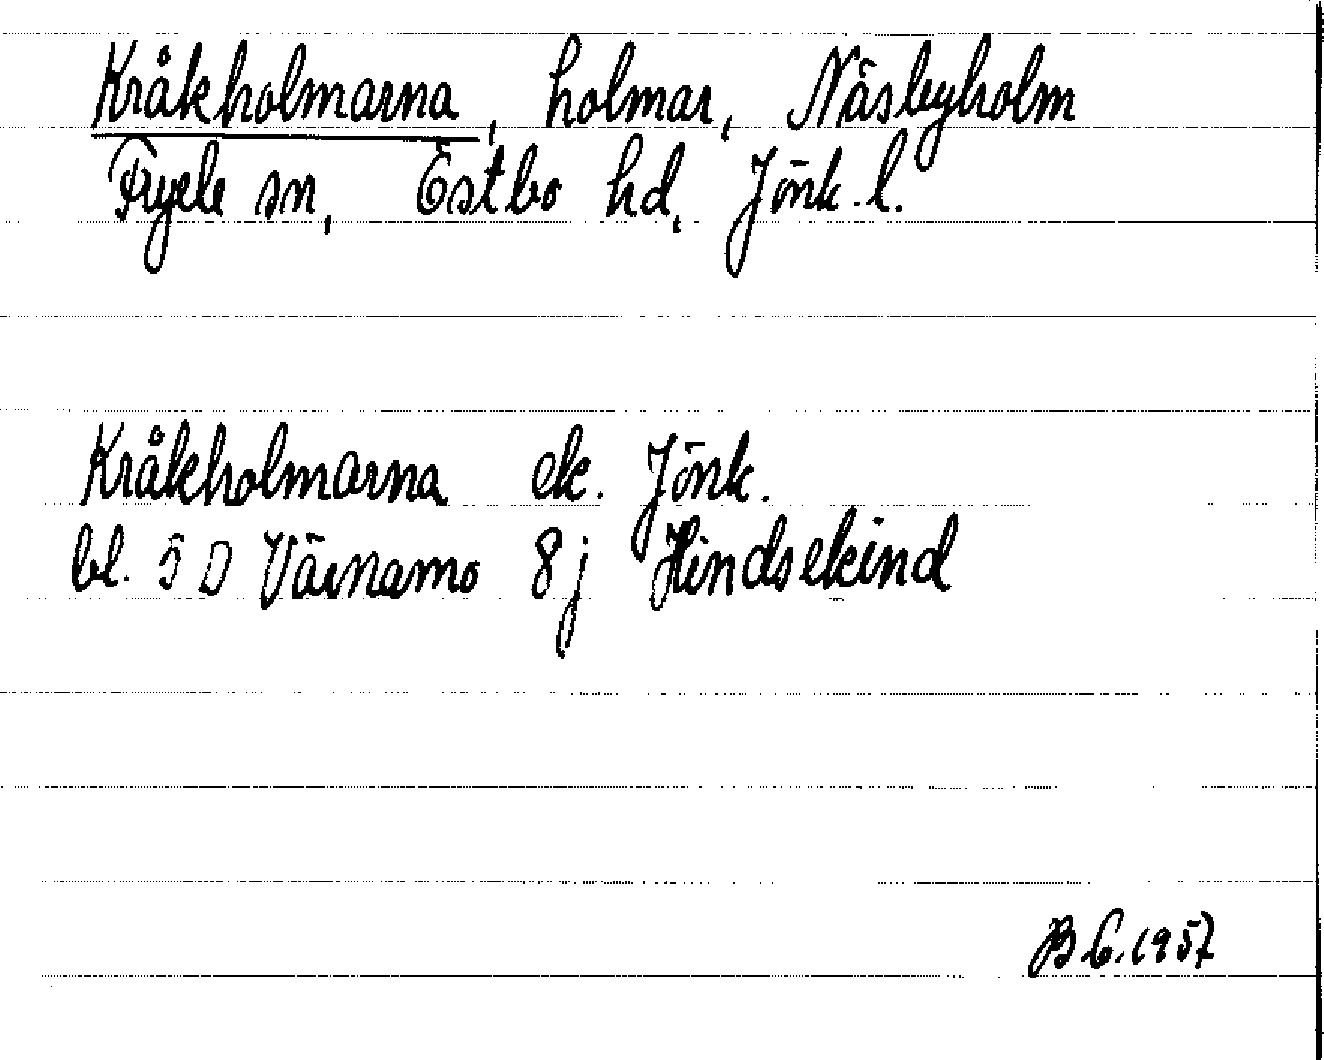 Kråkholmarna, holmar, Näsbyholm
Fryele sn, Östbo hd, Jönk. l.
Kråkholmarna ek. Jönk.
bl. 5 D Värnamo 8j Hindsekind
B G. 1957